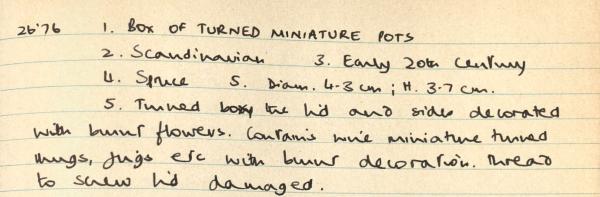 26'76 1. BOX OF TURNED MINIATURE POTS
2. Scandinavian 3. Early 20th Century
4. Spruce 5. Diam. 4.3 cm ; H. 3.7 cm.
5. Turned box, the lid and sides decorated
with burnt flowers. Contains nine miniature turned
mugs, jugs etc with burnt decoration. Thread
to screw lid damaged.